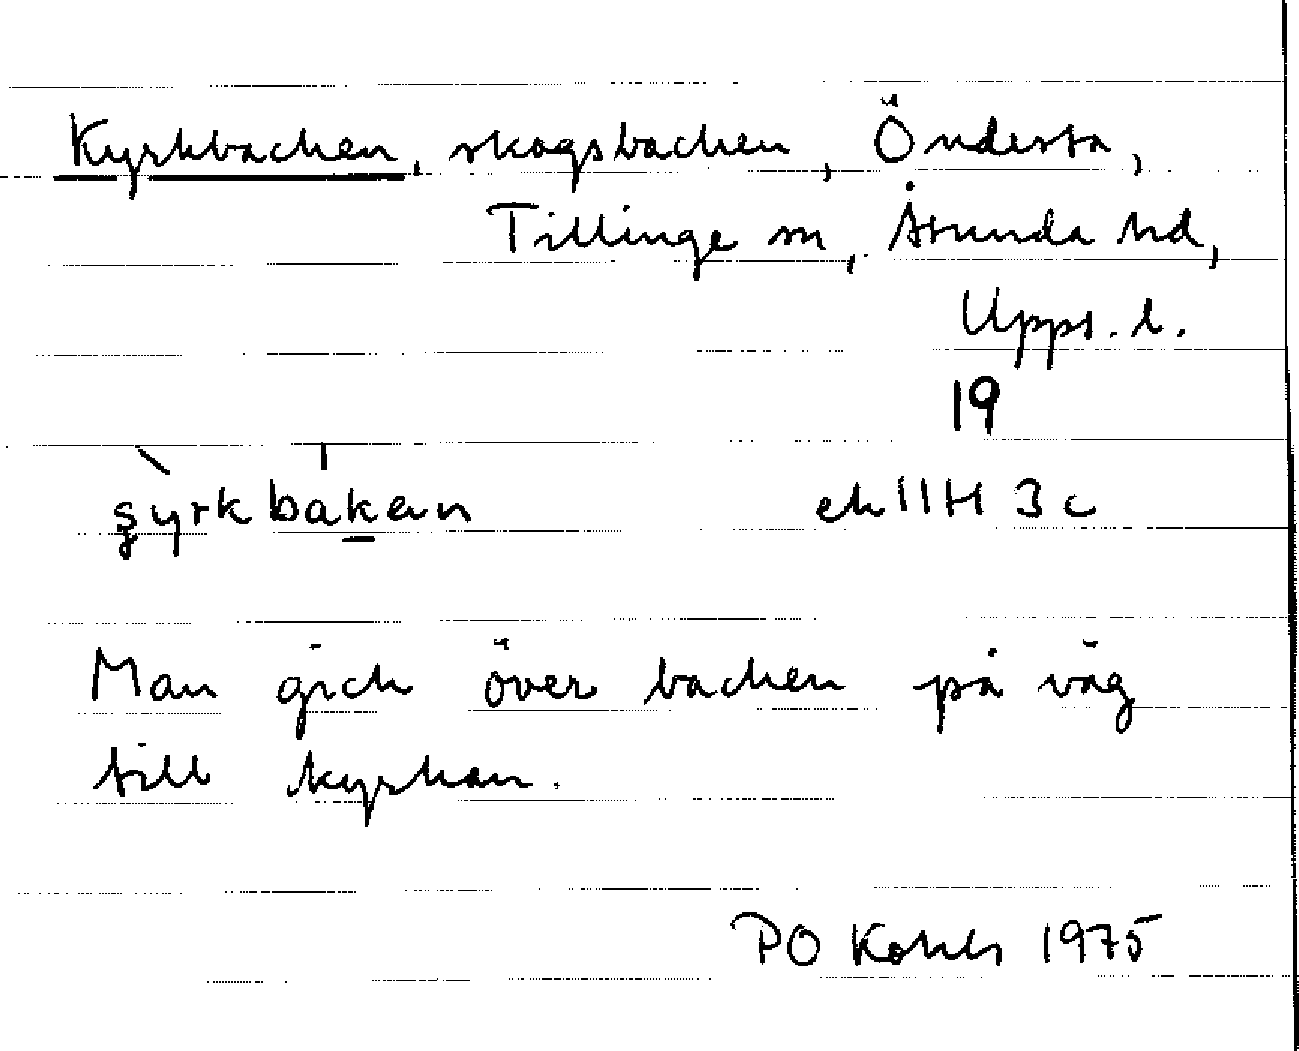 Kyrkbacken, skogsbacken, Öndersta,
Tillinge sn, Åsunda hd,
Upps. l.
19
ek 11H 3c
Man gick över backen på väg
till kyrkan.
PO 1975